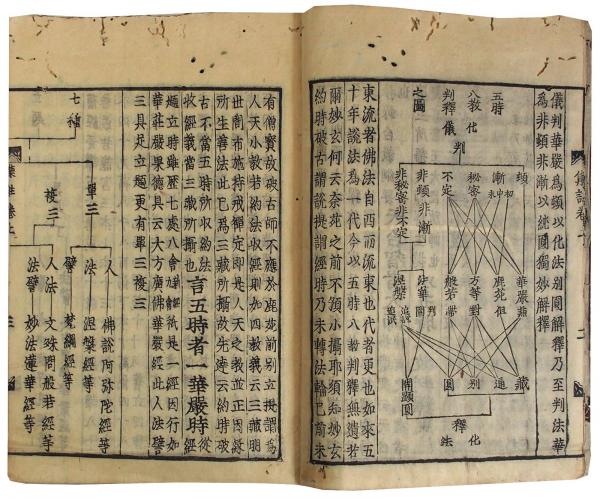 儀判華嚴為頓以化法別圓解釋乃至判法華
為非頓非漸以純圓獨妙解釋
五時
八教
判釋儀
之圖
化
判
頓
漸 初中末
秘密
不定
非頓非漸
非秘密非不定
華嚴 兼
鹿苑 但
方等 對
般若 帶
法華 圓
涅槃 追說追泯
藏
通
別
圓
開顯圓
化
釋
法
東流者佛法自西而流東也代者更也如來五
十年說法為一代今以五時八教判釋無遺若
爾妙玄何云奈苑之前不預小攝耶須知妙玄
約時破古謂說提謂經時乃未轉法輪已前未
有僧寶故破古師不應於鹿苑前別立提謂為
人天小教若約法收經則如四教義云三藏明
世間布施持戒禪定即是人天之教並正因緣
所生善法此已為三藏所攝故先達云約時破
古不當五時所收約法
收經義當三藏所攝也言五時者一華嚴時從
題立時雖歷七處八會祇是一經因行如
華莊嚴果德具云大方廣佛華嚴經此人法譬
三具足立題更有單三複三
七種
單三
人 佛說阿彌陀經等
法 涅槃經等
譬 梵網經等
複三
人法 文殊問般若經等
法譬 妙法蓮華經等